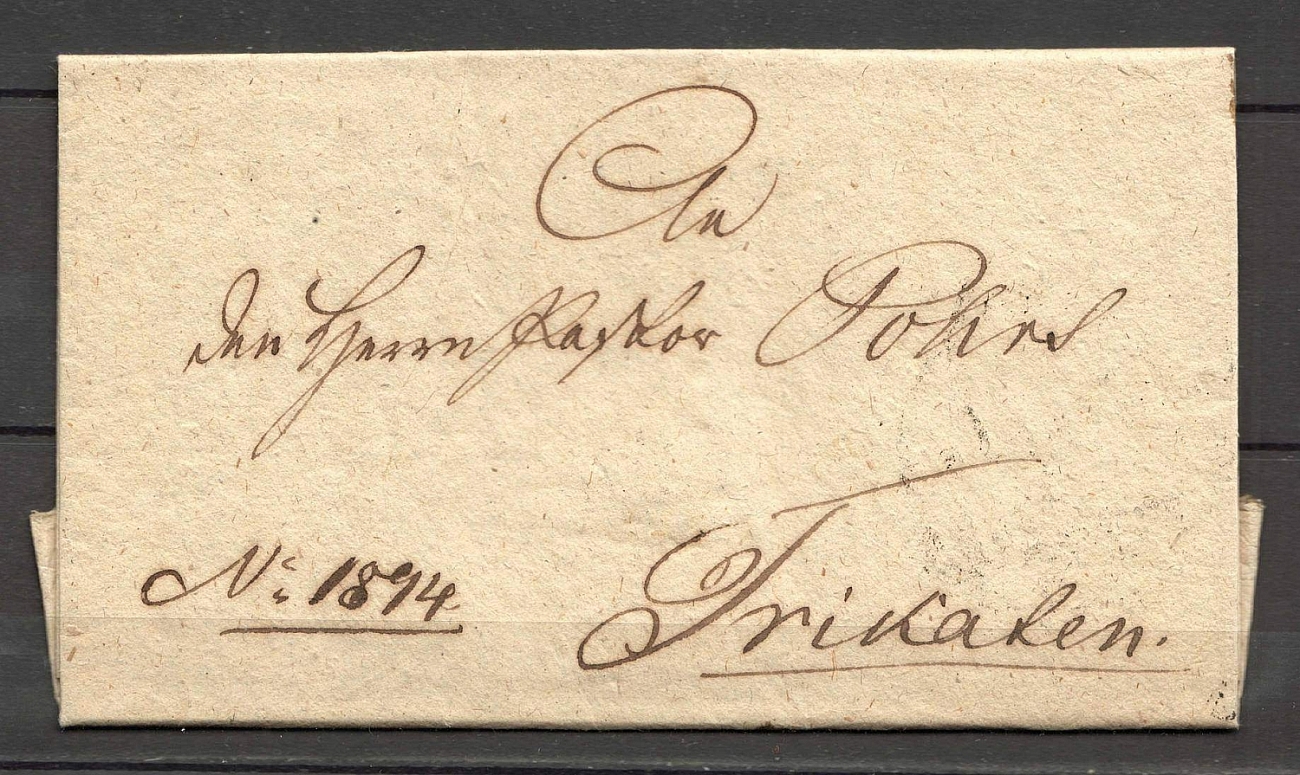 An
den Herrn Pastor
No: 1894
Trikaten.